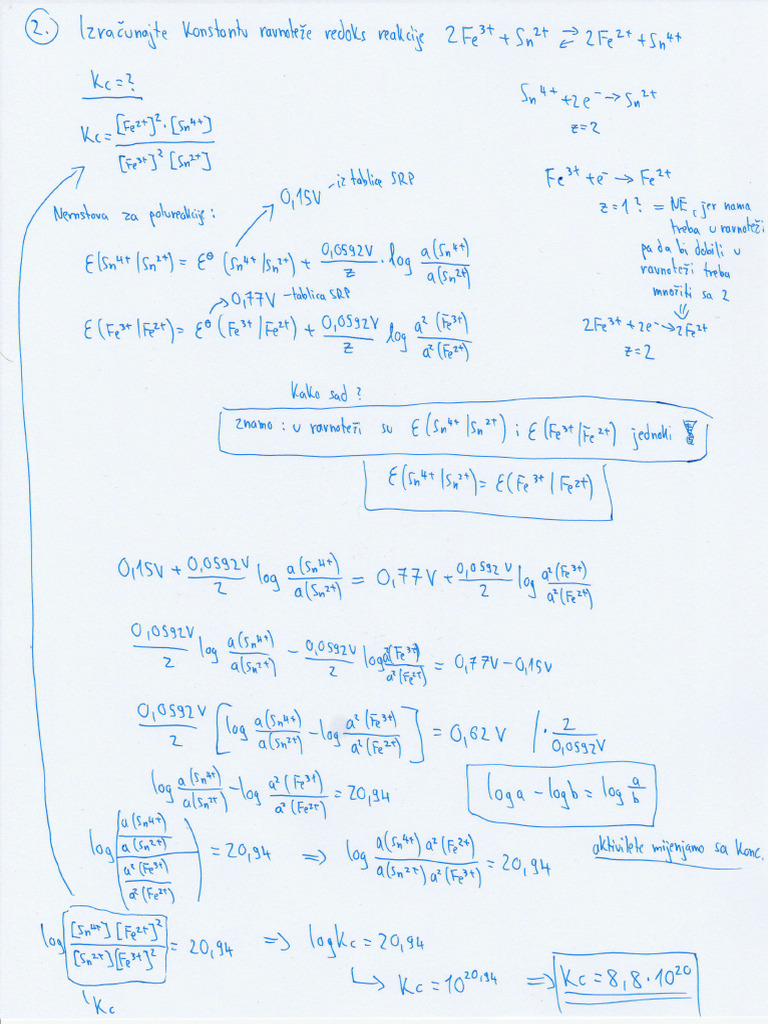 2. Izračunajte konstantu ravnoteže redoks reakcije 2Fe³⁺ + Sn²⁺ ⇌ 2Fe²⁺ + Sn⁴⁺
Kc = ?
Kc = [Fe²⁺]² · [Sn⁴⁺] / [Fe³⁺]² [Sn²⁺]
Sn⁴⁺ + 2e⁻ → Sn²⁺
z = 2
Fe³⁺ + e⁻ → Fe²⁺
z = 1? = NE, jer nama
treba u ravnoteži
pa da bi dobili u
ravnoteži treba
množiti sa 2
⇓
2Fe³⁺ + 2e⁻ → 2Fe²⁺
z = 2
Nernstova za polureakcije:
0,15V – iz tablice SRP
E(Sn⁴⁺|Sn²⁺) = E°(Sn⁴⁺|Sn²⁺) + 0,0592V / z · log a(Sn⁴⁺) / a(Sn²⁺)
0,77V – tablica SRP
E(Fe³⁺|Fe²⁺) = E°(Fe³⁺|Fe²⁺) + 0,0592V / z log a²(Fe³⁺) / a²(Fe²⁺)
Kako sad?
znamo: u ravnoteži su E(Sn⁴⁺|Sn²⁺) i E(Fe³⁺|Fe²⁺) jednaki !
E(Sn⁴⁺|Sn²⁺) = E(Fe³⁺|Fe²⁺)
0,15V + 0,0592V / 2 log a(Sn⁴⁺) / a(Sn²⁺) = 0,77V + 0,0592V / 2 log a²(Fe³⁺) / a²(Fe²⁺)
0,0592V / 2 log a(Sn⁴⁺) / a(Sn²⁺) – 0,0592V / 2 log a²(Fe³⁺) / a²(Fe²⁺) = 0,77V – 0,15V
0,0592V / 2 [log a(Sn⁴⁺) / a(Sn²⁺) – log a²(Fe³⁺) / a²(Fe²⁺)] = 0,62V | · 2 / 0,0592V
log a(Sn⁴⁺) / a(Sn²⁺) – log a²(Fe³⁺) / a²(Fe²⁺) = 20,94
log a – log b = log a / b
log ((a(Sn⁴⁺) / a(Sn²⁺)) / (a²(Fe³⁺) / a²(Fe²⁺))) = 20,94 ⇒ log a(Sn⁴⁺) a²(Fe²⁺) / a(Sn²⁺) a²(Fe³⁺) = 20,94
aktivitete mijenjamo sa konc.
log [Sn⁴⁺] [Fe²⁺]² / [Sn²⁺] [Fe³⁺]² = 20,94 ⇒ log Kc = 20,94
Kc
Kc = 10²⁰'⁹⁴ ⇒ Kc = 8,8 · 10²⁰